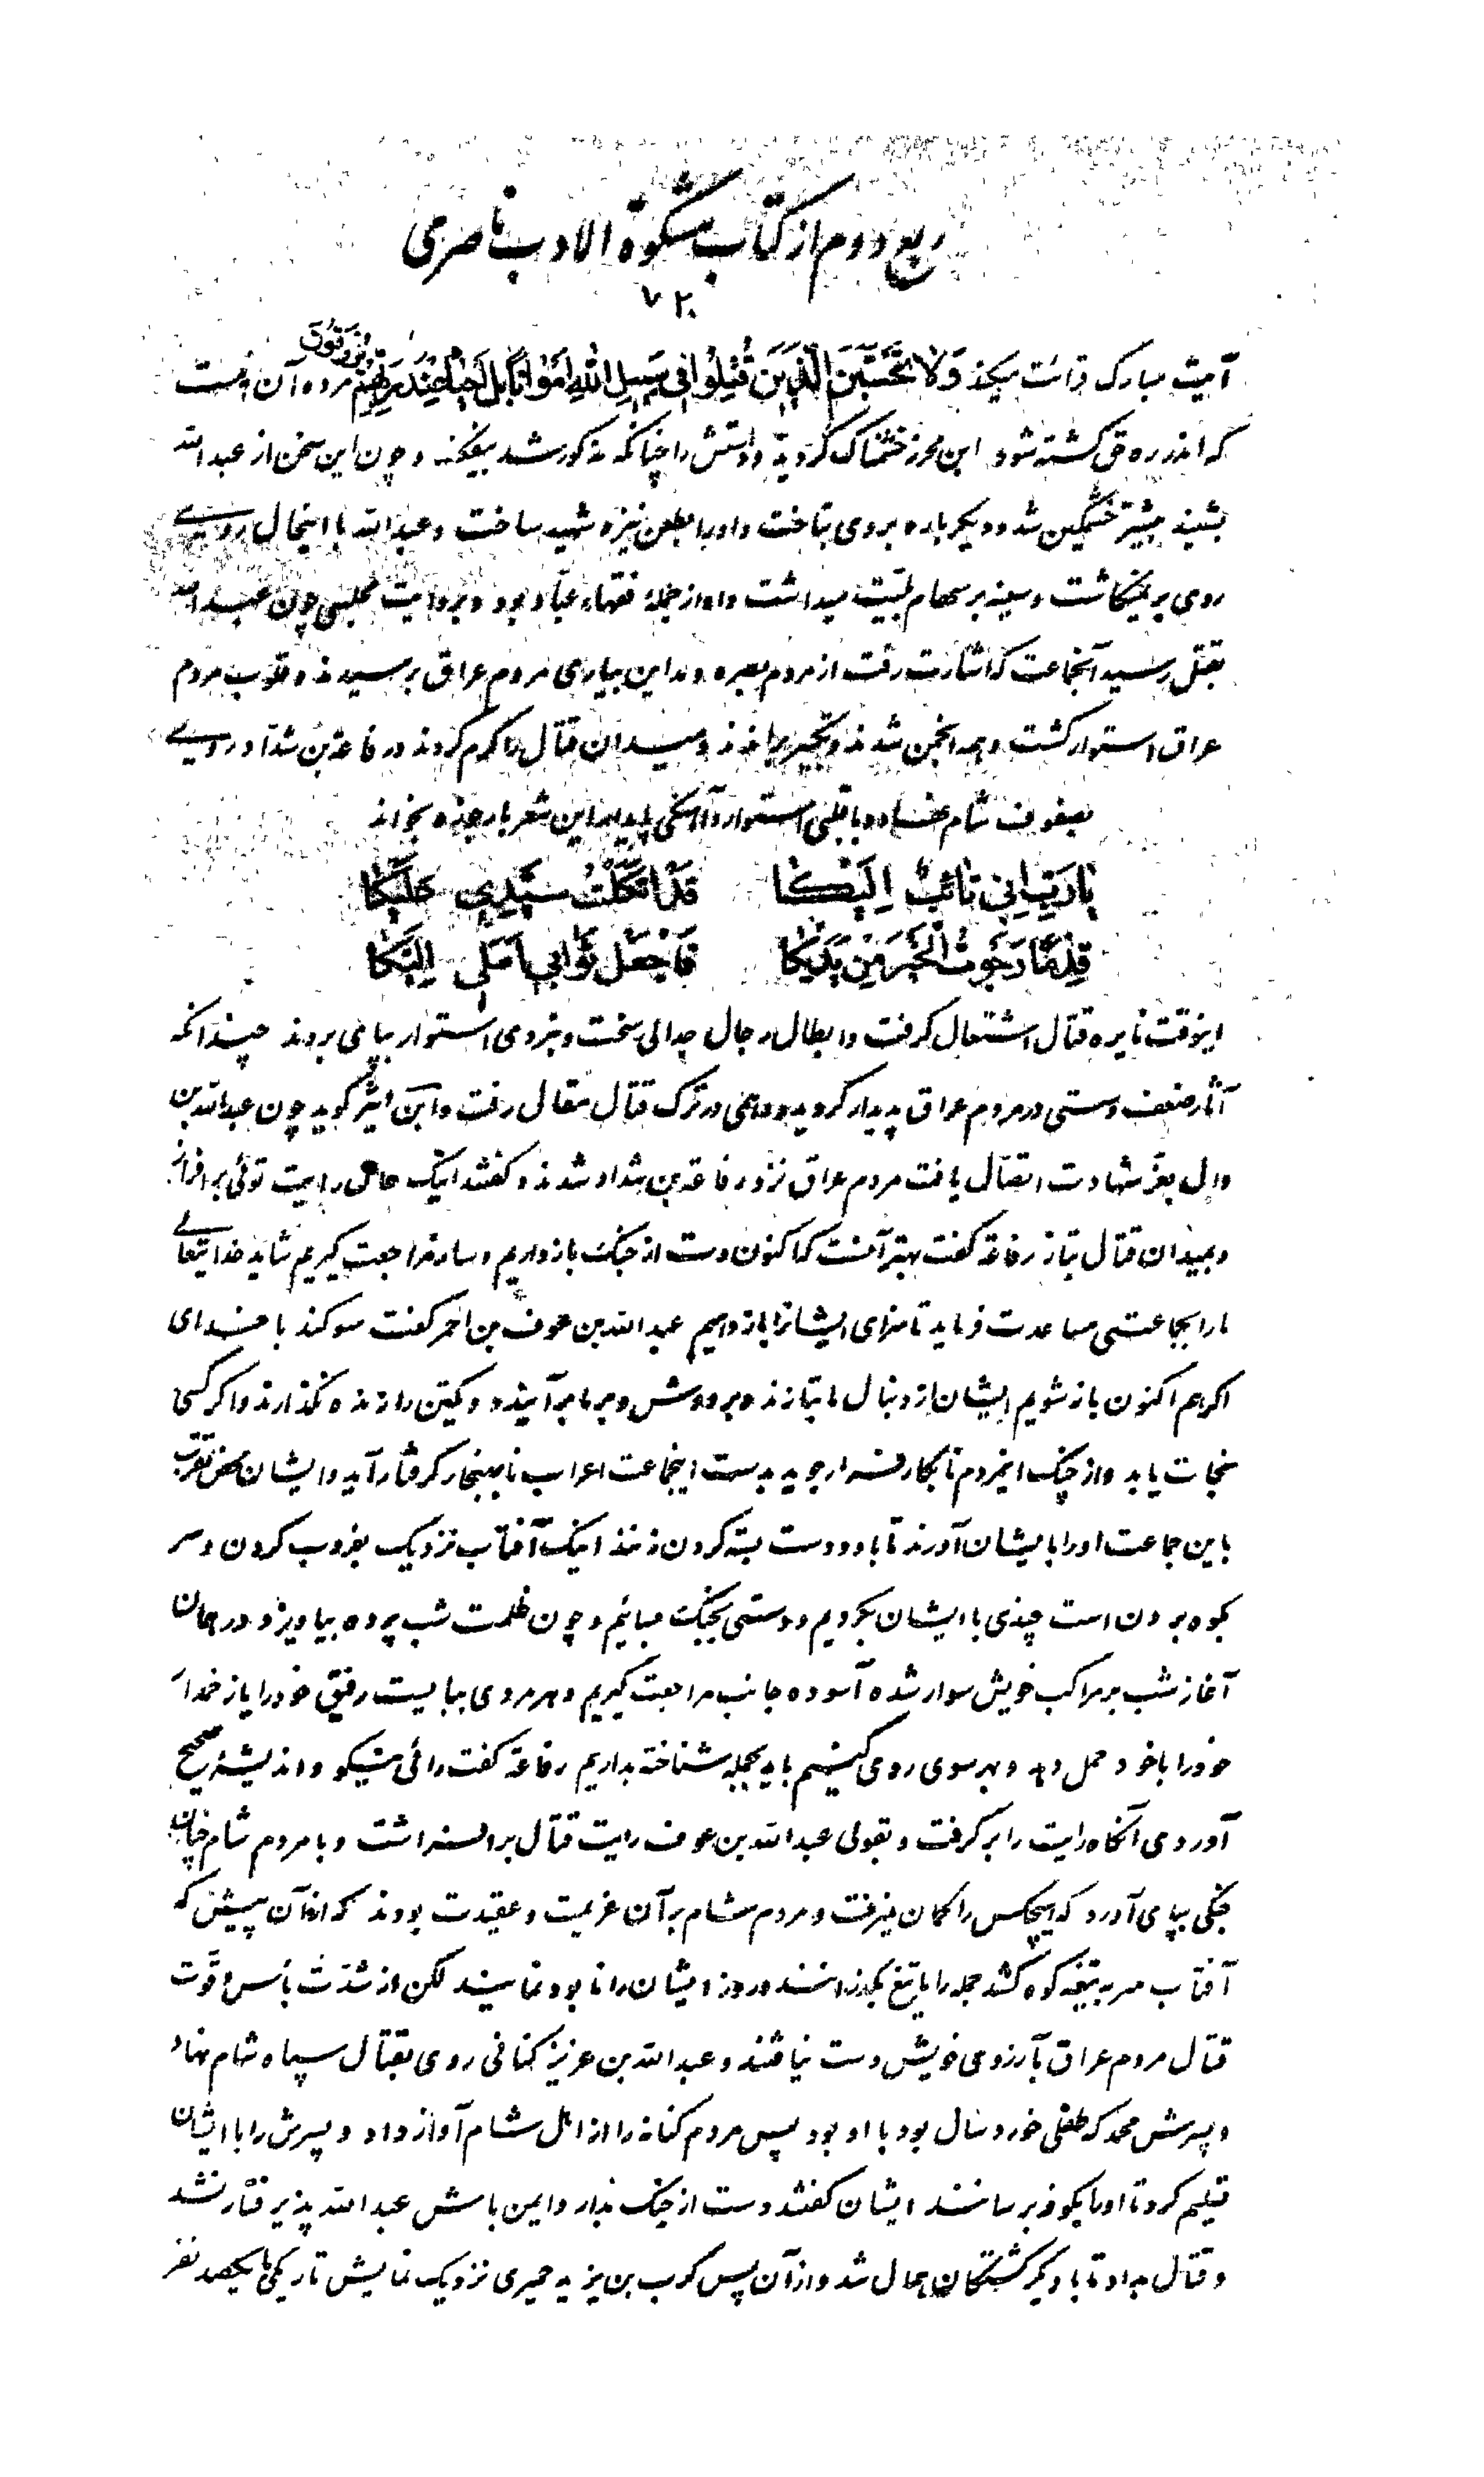 ربع دوم از کتاب مشکوة الادب ناصری
۷۲۰
آیت مبارک قرائت میکند وَلا تَحْسَبَنَّ الَّذینَ قُتِلُوا فی سَبیلِ اللهِ اَمْواتًا بَلْ اَحْیاءٌ عِنْدَ رَبِّهِمْ یُرْزَقُونَ مرده آن است
که اندر ره حق کشته شود ابن محرز خشمناک کردید و دستش را چنانکه مذکور شد بیفکند و چون این سخن از عبدالله
بشنید بیشتر خشمگین شد و دیگر باره بروی بتاخت و او را بطعن نیزه شهید ساخت و عبدالله با اینحال روی
روی بر نمیکاشت و سینه بر سهام بلیّت میداشت و او از جملهٔ فقهاء عبّاد بود و بروایت مجلسی چون عبدالله
بقتل رسید آنجماعت که اشارت رفت از مردم بصره و مداین بیاری مردم عراق برسیدند و قلوب مردم
عراق استوار کشت و همه انجمن شدند و تکبیر براندند و میدان قتال را گرم کردند رفاعة بن شدّاد روی
بصفوف شام نهاد و با قلبی استوار و آهنگی پایدار این شعر بارجوزه بخواند
یا رَبِّ اِنّی تائِبٌ اِلَیْکا قَدِ اتَّکَلْتُ سَیِّدی عَلَیْکا
قِدْمًا رَجَوْتُ الْخَیْرَ مِنْ یَدَیْکا فَاجْعَلْ ثَوابی اَمَلی اِلَیْکا
اینوقت نایره قتال اشتعال کرفت و ابطال رجال جدالی سخت و نبردی استوار بپای بردند چندانکه
آثار ضعف و سستی در مردم عراق پدیدار کردید و در ترک قتال مقال رفت و ابن اثیر کوید چون عبدالله بن
وال بعزّ شهادت اتصال یافت مردم عراق نزد رفاعة بن شداد شدند و کفتند اینک حامل رایت توئی بر افراز
و بمیدان قتال بتاز رفاعة کفت بهتر آنست که اکنون دست از جنک باز داریم و ساز مراجعت کیریم شاید خدایتعالی
ما را بجماعتی مساعدت فرماید تا سزای ایشانرا باز دهیم عبدالله بن عوف بن احمر کفت سوکند با خدای
اکر هم اکنون باز شویم ایشان از دنبال ما بتازند و بر دوش و بر ما بر آیند و یکتن را زنده نکذارند و اکر کسی
نجات یابد و از چنک اینمردم نابکار فرار جوید بدست اینجماعت اعراب نابهنجار کرفتار آید و ایشان محض تقرب
باین جماعت او را بایشان آورند تا با دو دست بسته کردن زنند اینک آفتاب نزدیک بغروب کردن و سر
بکوه بردن است چندی با ایشان بکردیم و دستی بجنک بپائیم و چون ظلمت شب پرده بیاویزد در همان
آغاز شب بر مراکب خویش سوار شده آسوده جانب مراجعت کیریم و هر مردی ببایست رفیق خود را یا زخمدار
خود را با خود حمل دهد و بهر سوی روی کنیم باید بجمله شناخته بداریم رفاعة کفت رائی نیکو و اندیشهٔ صحیح
آوردی آنکاه رایت را بر کرفت و بقولی عبدالله بن عوف رایت قتال بر افراشت و با مردم شام چنان
جنکی بپای آورد که هیچکس را کمان نمیرفت و مردم شام بر آن عزیمت و عقیدت بودند که از آن پیش که
آفتاب سر به تیغه کوه کشد جمله را با تیغ بگذرانند و روز ایشان را نابود نمایند لکن از شدّت بأس و قوّت
قتال مردم عراق بآرزوی خویش دست نیافتند و عبدالله بن عزیز کنانی روی بقتال سپاه شام نهاد
و پسرش محمد که طفلی خورد سال بود با او بود پس مردم کنانه را از اهل شام آواز داد و پسرش را با ایشان
تسلیم کرد تا او را بکوفه برسانند ایشان کفتند دست از جنک بدار و ایمن باش عبدالله پذیرفتار نشد
و قتال بداد تا با دیگر کشتکان همال شد و از آن پس کرب بن یزید حمیری نزدیک نمایش تاریکی با یکصد نفر